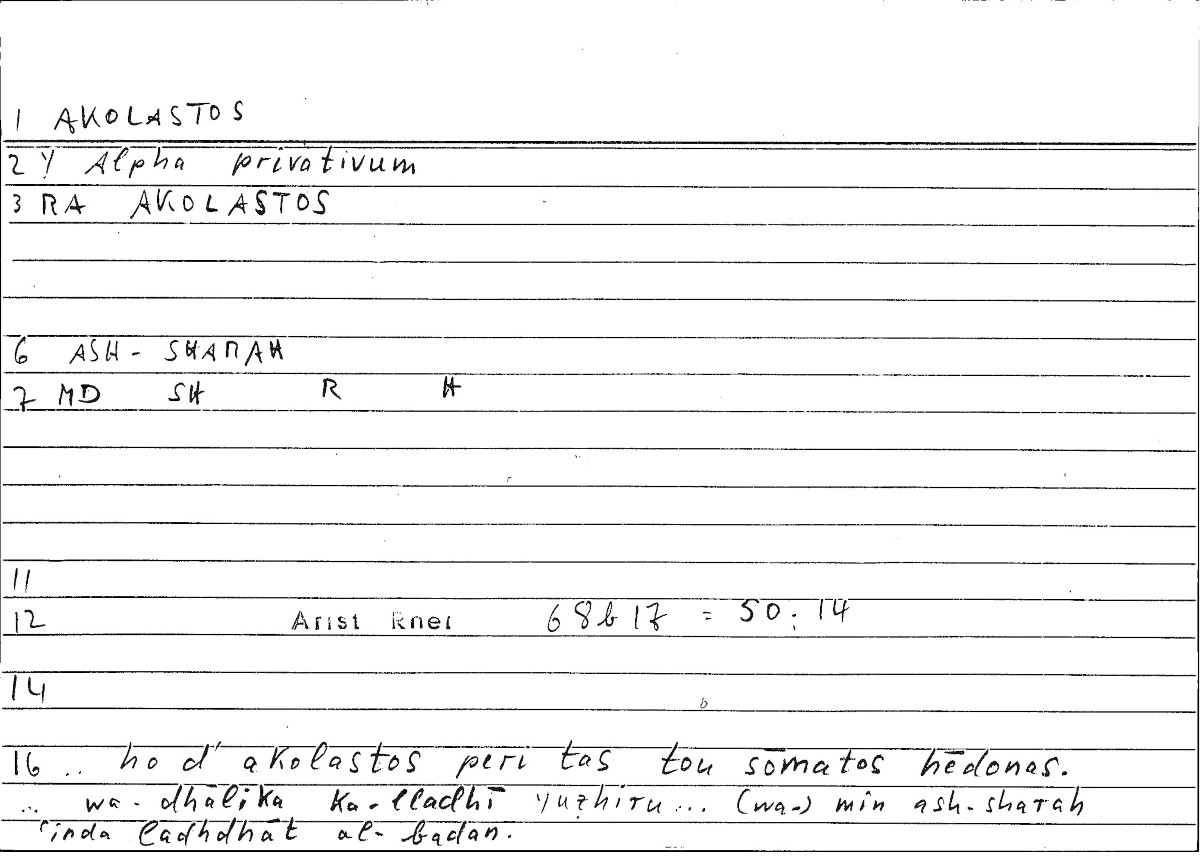 1 AKOLASTOS
2 Y Alpha privativum
3 RA AKOLASTOS
6 ASH-SHARAH
7 MD SH R H
11
12 Arist Rhet 68b17 = 50:14
14
b
16 .. ho d' akolastos peri tas tou sōmatos hēdonas.
... wa-dhālika ka-lladhī yuẓhiru... (wa-) min ash-sharah
ʿinda ladhdhāt al-badan.